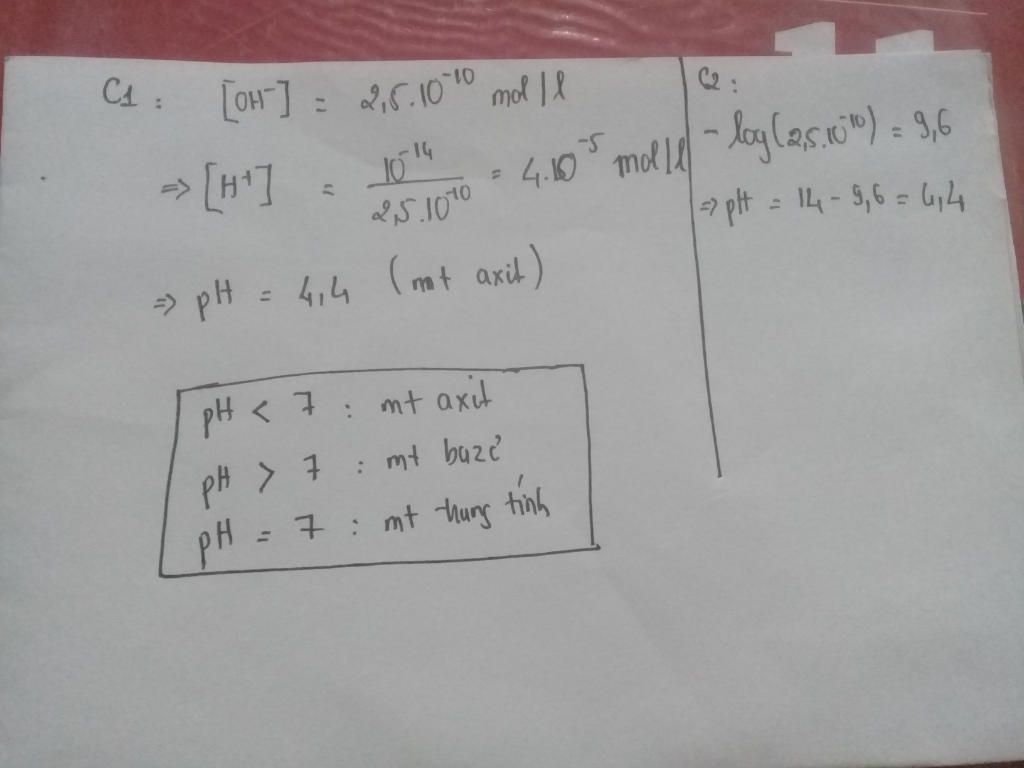 C1 : [OH⁻] = 2,5.10⁻¹⁰ mol/l
⇒ [H⁺] = 10⁻¹⁴ / 2,5.10⁻¹⁰ = 4.10⁻⁵ mol/l
⇒ pH = 4,4 (mt axit)
pH < 7 : mt axit
pH > 7 : mt bazơ
pH = 7 : mt trung tính
C2 :
- log(2,5.10⁻¹⁰) = 9,6
⇒ pH = 14 - 9,6 = 4,4